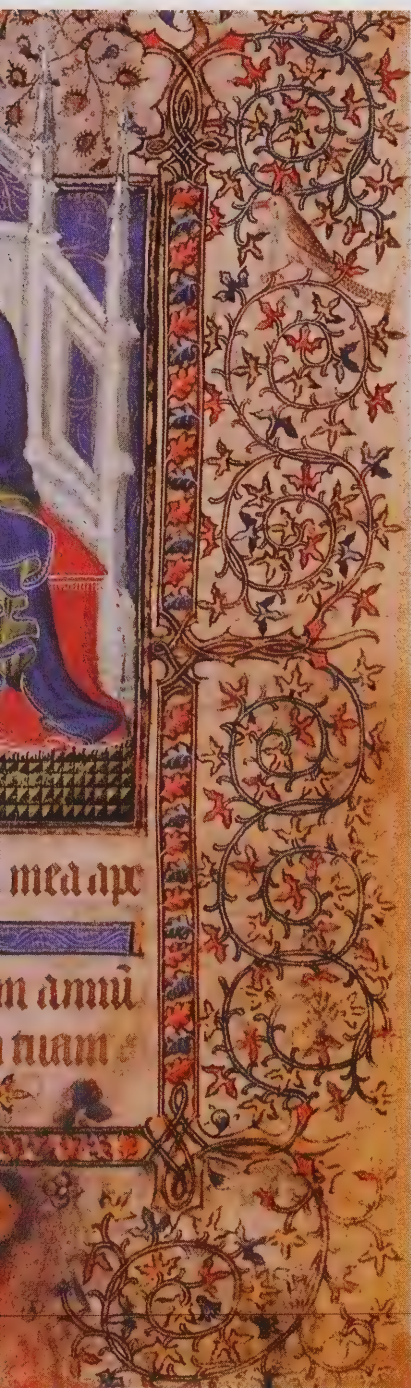 mea ape
m annū
tuam